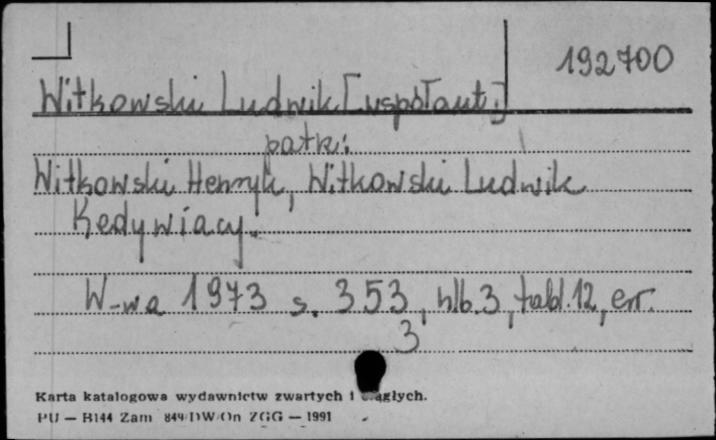 192700
Witkowski Ludwik [współaut.]
patrz:
Witkowski Henryk, Witkowski Ludwik
Kedywiacy.
W-wa 1973 s. 353, nlb. 3, tabl. 12, err.
3
Karta katalogowa wydawnictw zwartych i ciągłych.
PU — B144 Zam 849/DW/On ZGG — 1991